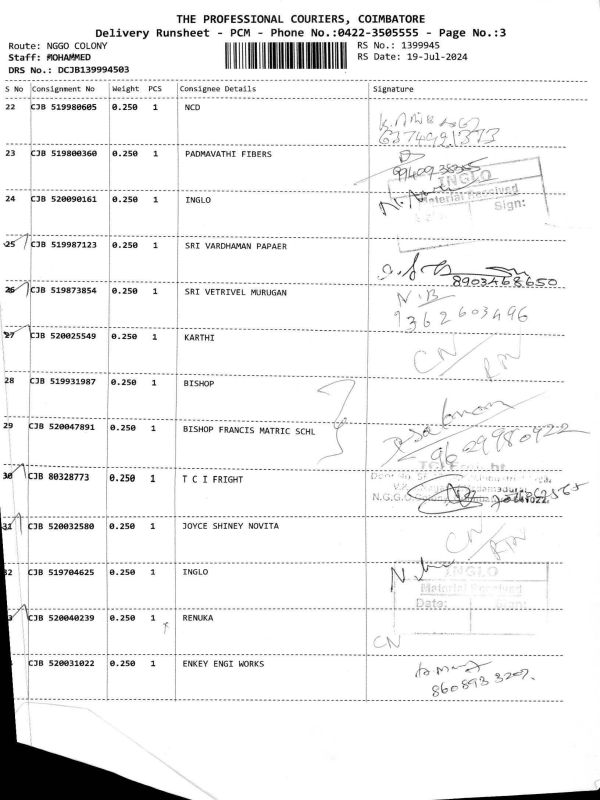 THE PROFESSIONAL COURIERS, COIMBATORE
Delivery Runsheet - PCM - Phone No.:0422-3505555 - Page No.:3
Route: NGGO COLONY RS No.: 1399945
Staff: MOHAMMED RS Date: 19-Jul-2024
DRS No.: DCJB139994503
S No Consignment No Weight PCS Consignee Details Signature
22 CJB 519980605 0.250 1 NCD
6374991373
23 CJB 519800360 0.250 1 PADMAVATHI FIBERS
INGLO
Material Received
Sign:
24 CJB 520090161 0.250 1 INGLO
25 CJB 519987123 0.250 1 SRI VARDHAMAN PAPAER
8903468650
26 CJB 519873854 0.250 1 SRI VETRIVEL MURUGAN
N.B
9362603496
27 CJB 520025549 0.250 1 KARTHI
CN/RN
28 CJB 519931987 0.250 1 BISHOP
29 CJB 520047891 0.250 1 BISHOP FRANCIS MATRIC SCHL
9629980422
30 CJB 80328773 0.250 1 T C I FRIGHT
31 CJB 520032580 0.250 1 JOYCE SHINEY NOVITA
CN/RN
2 CJB 519704625 0.250 1 INGLO
INGLO
Material Received
Date: Sign:
CJB 520040239 0.250 1 RENUKA
CN
CJB 520031022 0.250 1 ENKEY ENGI WORKS
8608933207